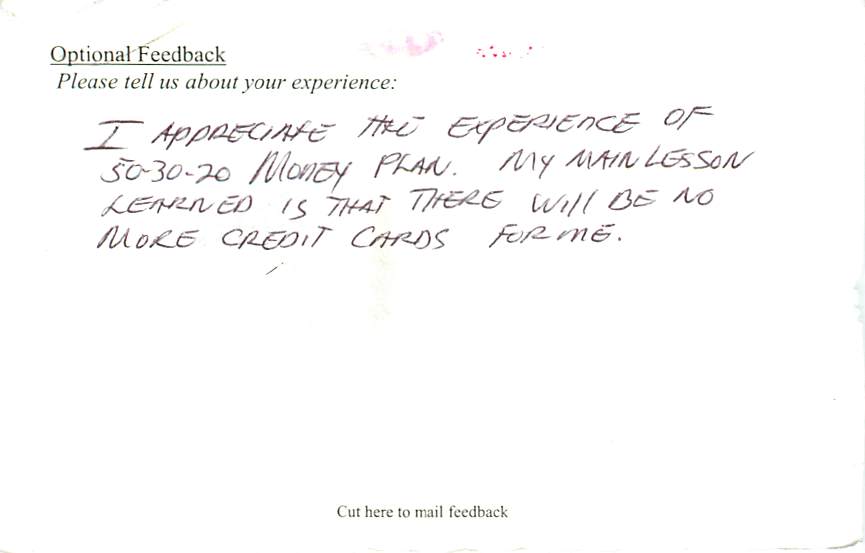 Optional Feedback
Please tell us about your experience:
I APPRECIATE THE EXPERIENCE OF
50-30-20 MONEY PLAN. MY MAIN LESSON
LEARNED IS THAT THERE WILL BE NO
MORE CREDIT CARDS FOR ME.
Cut here to mail feedback